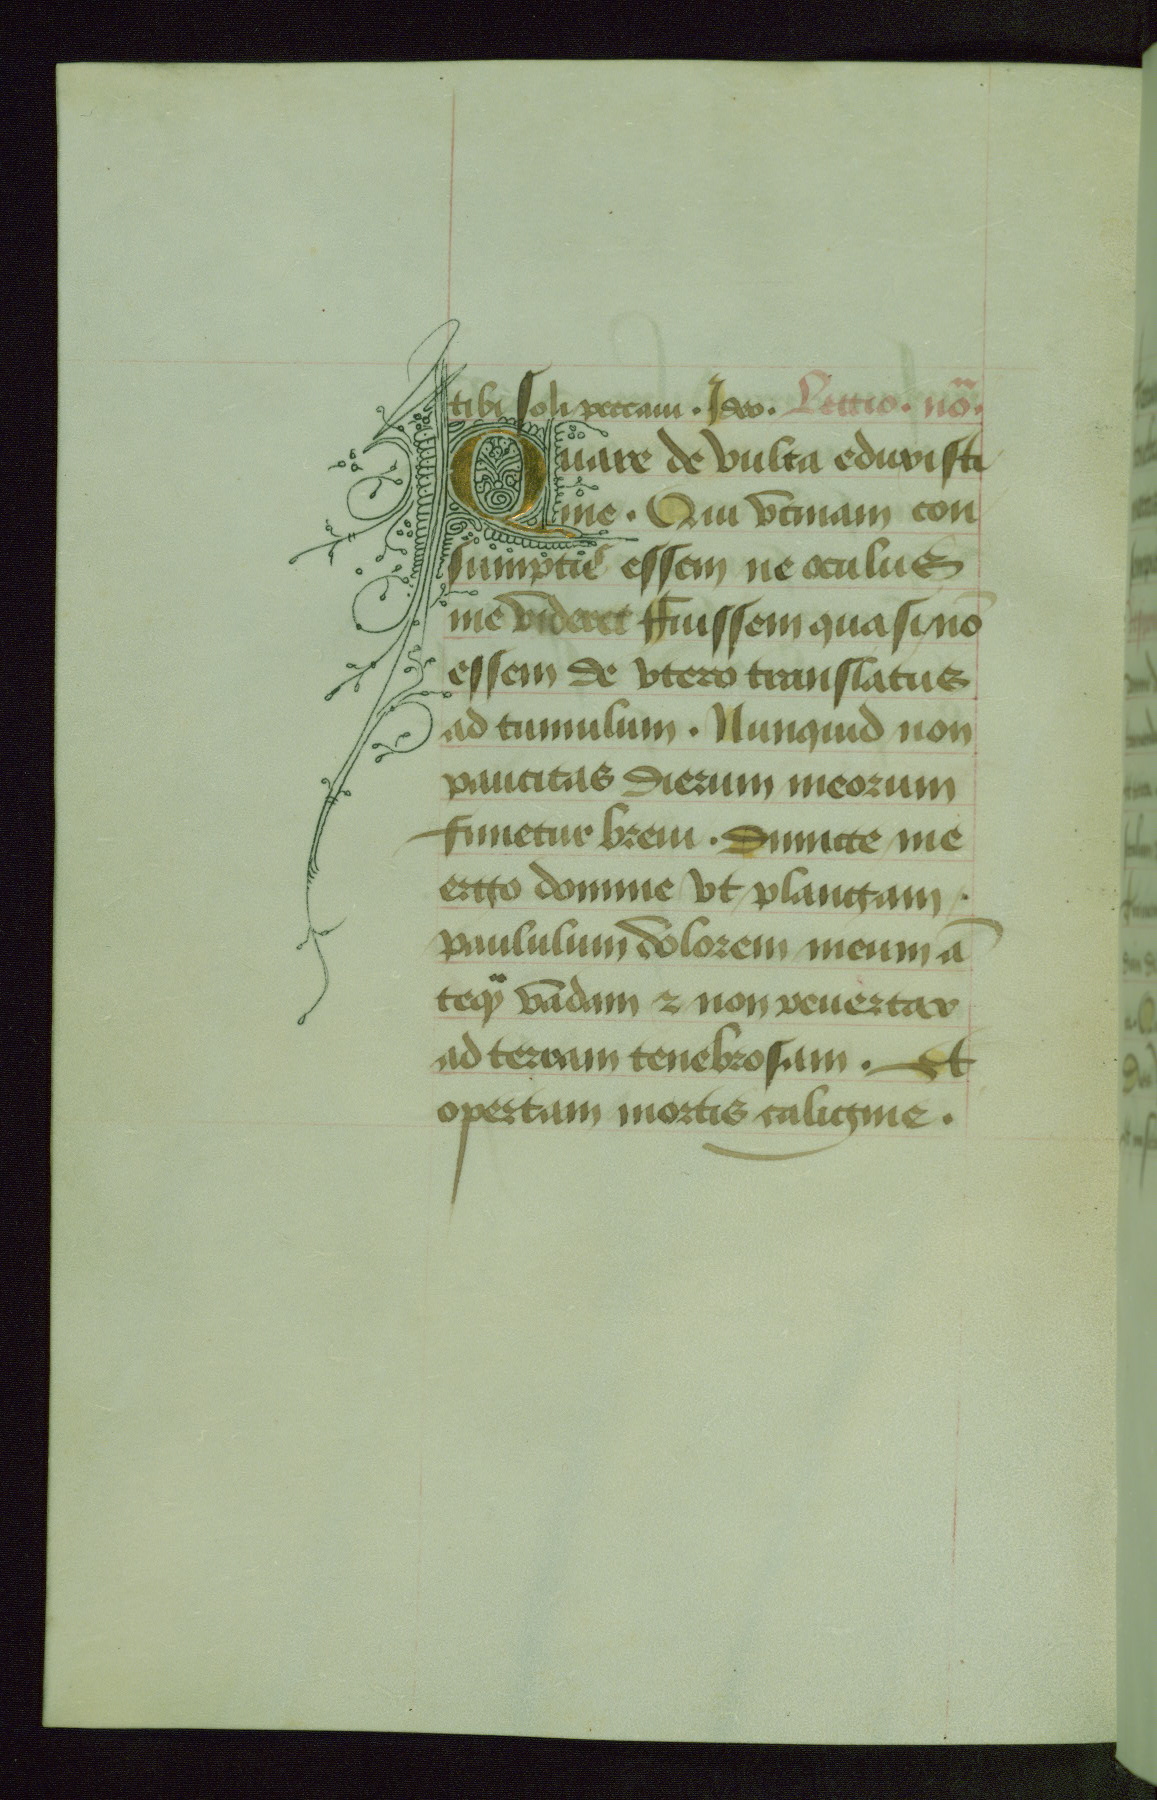 tibi soli peccaui. Ideo. Lectio. nõa.
Quare de vulua eduxisti
me. Qui vtinam con
sumptus essem ne oculus
me videret ffuissem quasi nõ
essem de vtero translatus
ad tumulum. Nunquid non
paucitas dierum meorum
finietur breui. Dimitte me
ergo domine vt plangam
paululum dolorem meum ã
teqȝ vadam ⁊ non reuertar
ad terram tenebrosam. Et
opertam mortis caligine.